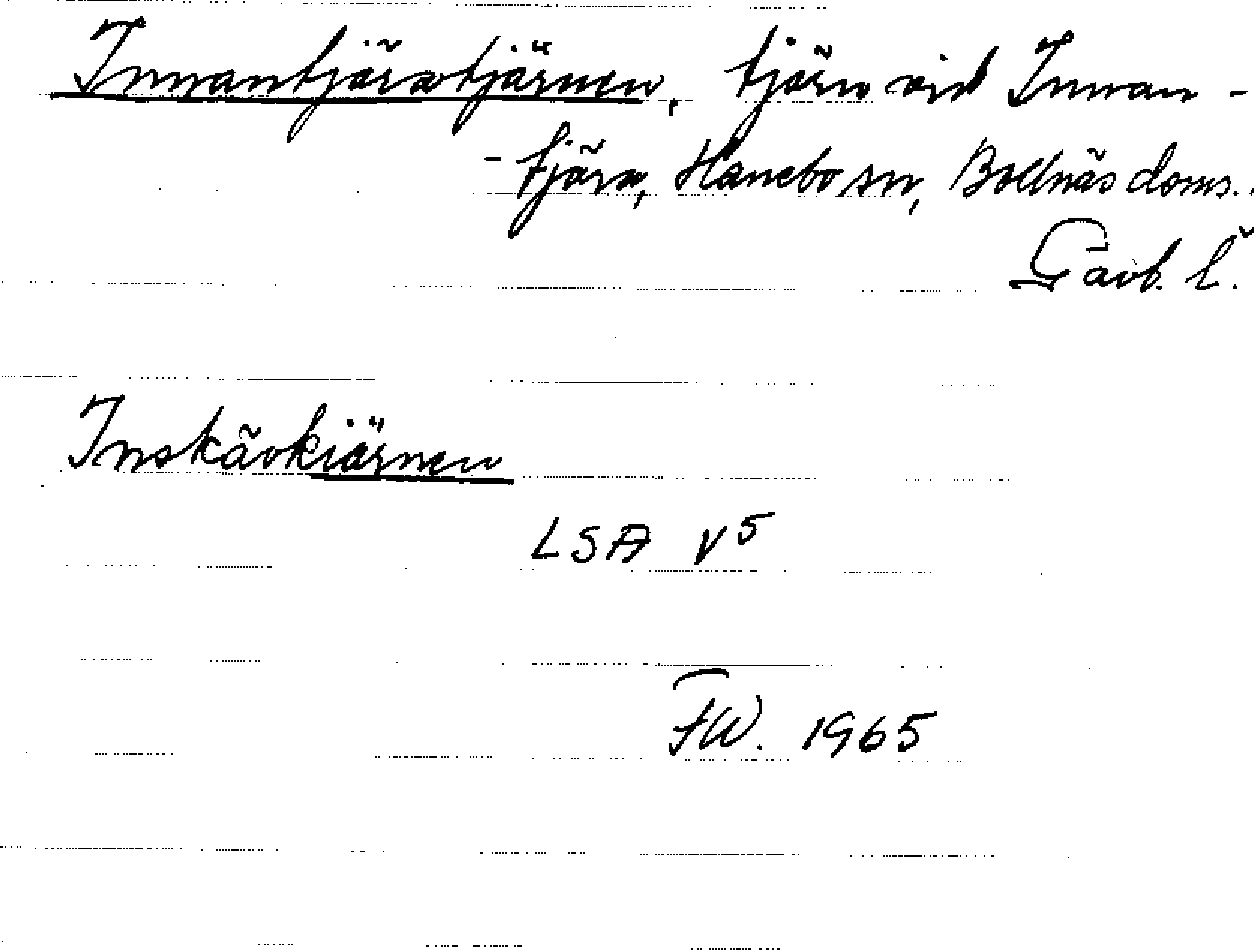 Innantjäratjärnen, tjärn vid Innan-
-tjära, Hanebo sn, Bollnäs doms.
Gävb. l.
Inskävkiärnen
LSA V5
FW. 1965